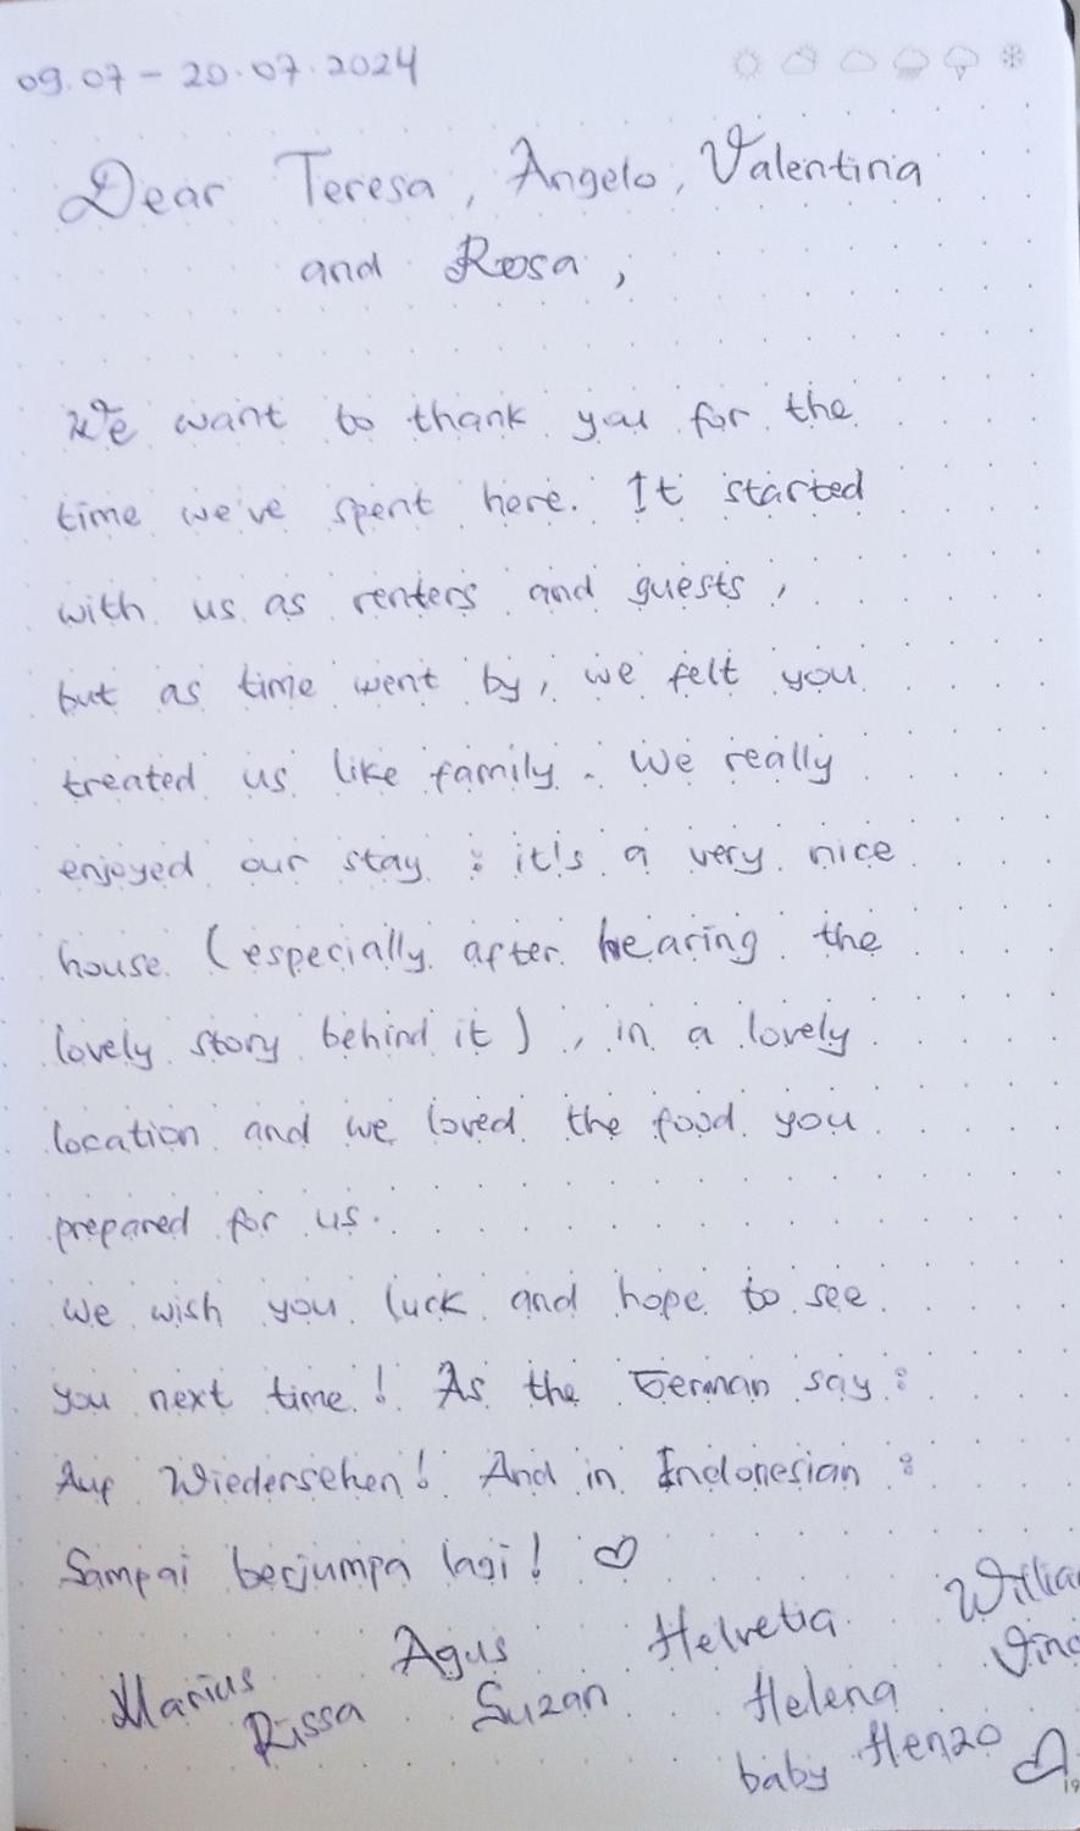 09.07 - 20.07.2024
Dear Teresa, Angelo, Valentina
and Rosa,
We want to thank you for the
time we've spent here. It started
with us as renters and guests,
but as time went by, we felt you
treated us like family. We really
enjoyed our stay : it's a very nice
house (especially after hearing the
lovely story behind it), in a lovely
location and we loved the food you
prepared for us.
We wish you luck and hope to see
you next time! As the German say :
Auf Wiedersehen! And in Indonesian :
Sampai berjumpa lagi! ♡
Marius
Rissa
Agus
Suzan
Helvetia
Helena
baby Henzo ♡
19